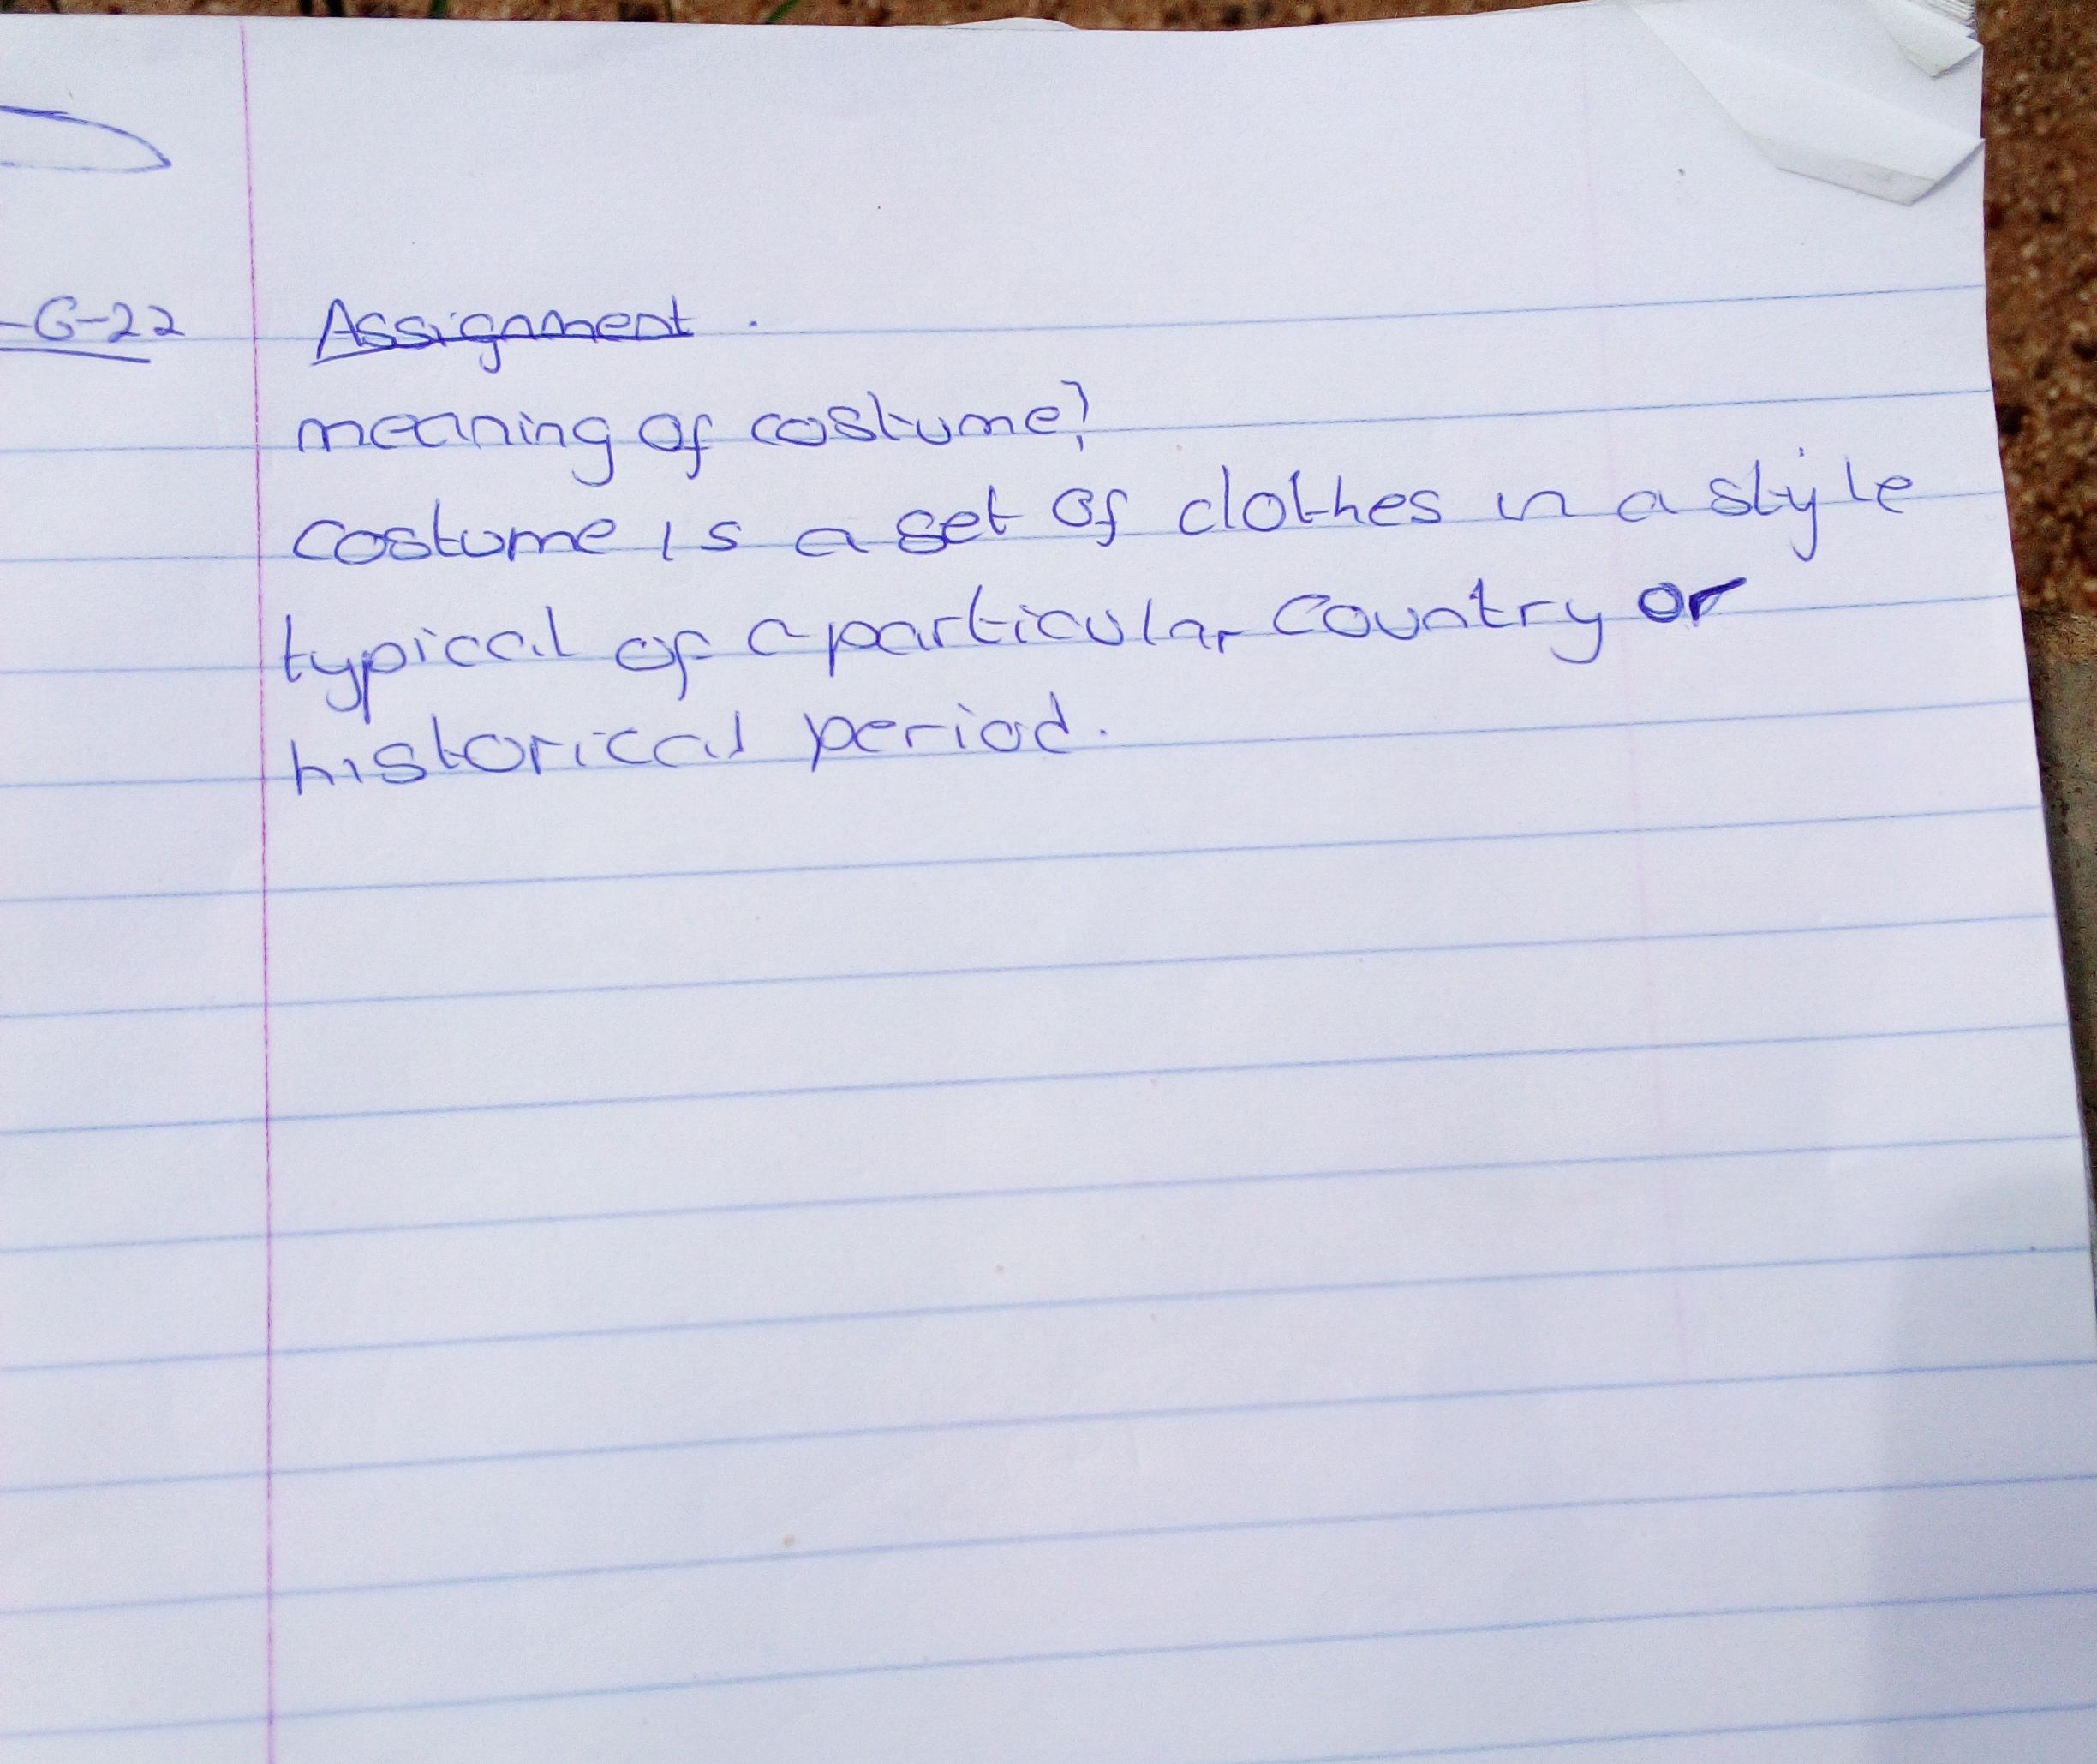 -6-22 Assignment.
meaning of costume?
costume is a set of clothes in a style
typical of a particular country or
historical period.